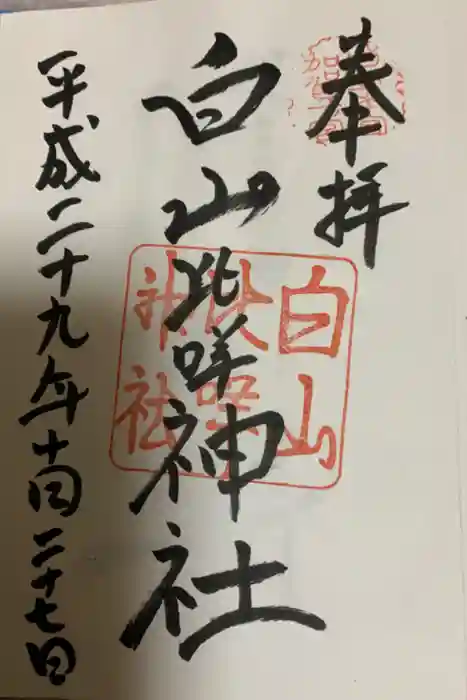 奉拝
白山比咩神社
白山
比咩
神社
平成二十九年十月二十七日